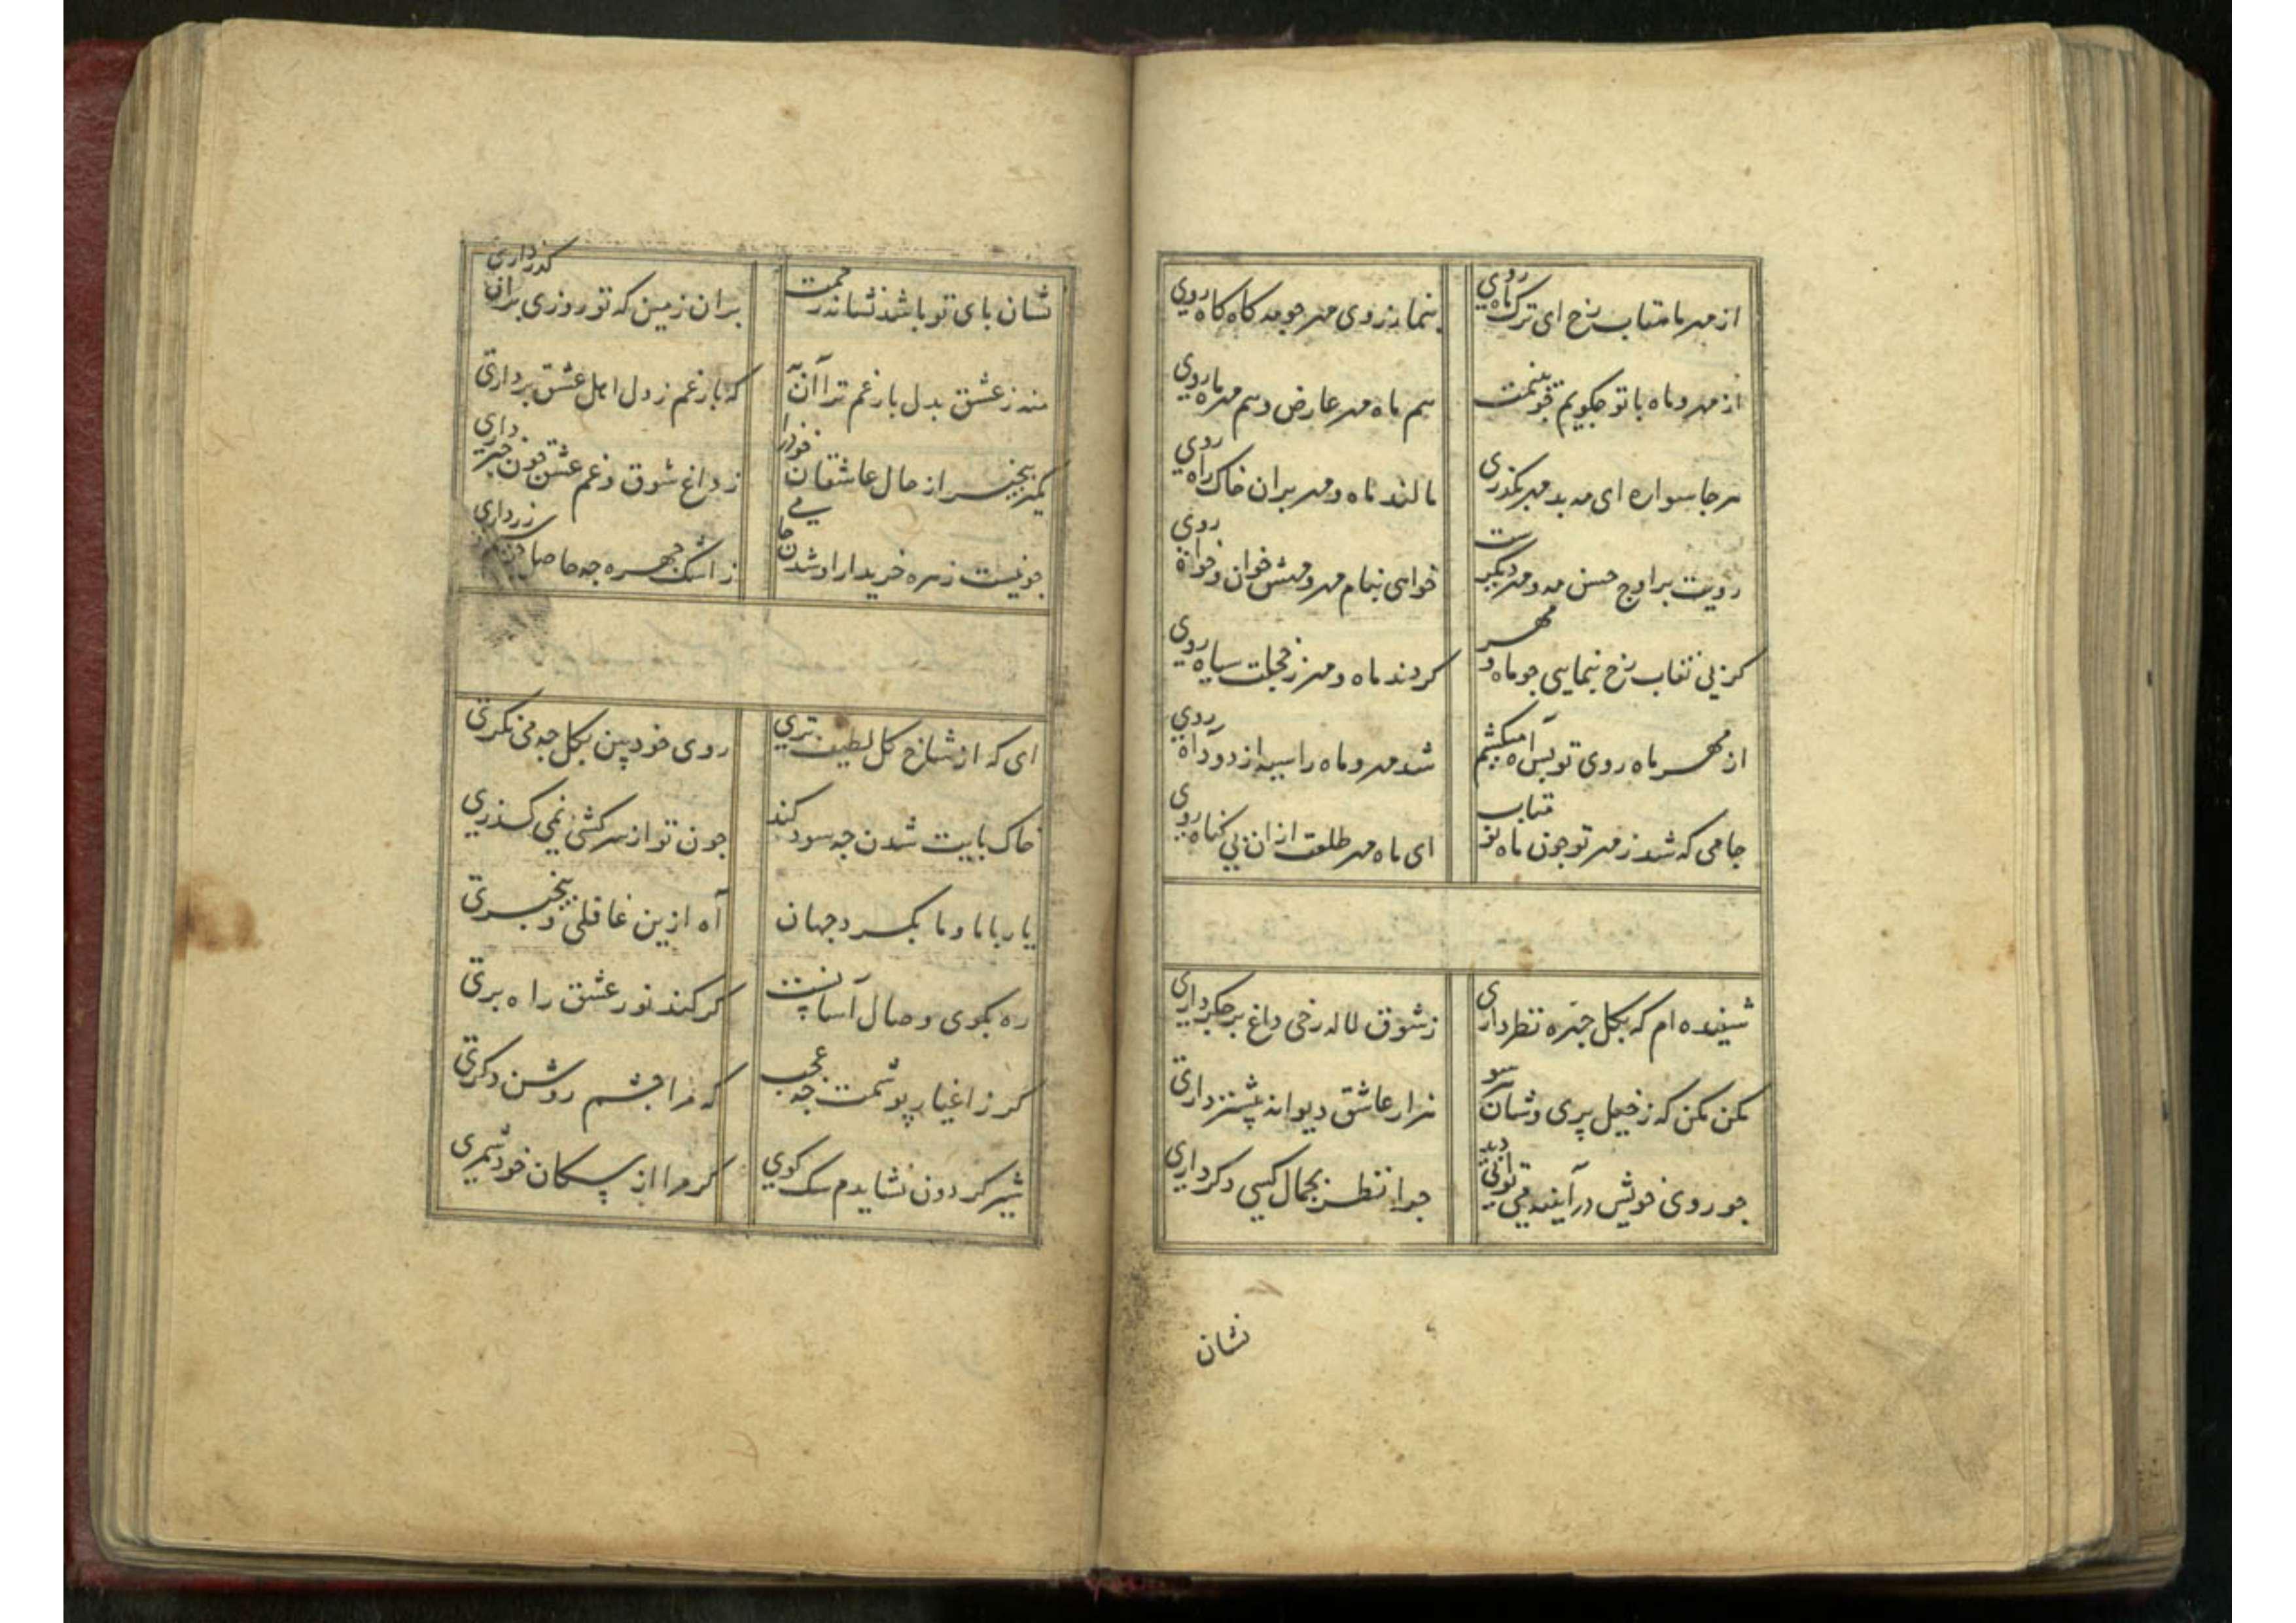 از مهر ما متاب رخ ای ترک ماه روی
بنما ز روی مهر چو مه کاه کاه روی
از مهر و ماه با تو جکویم جو بینمت
هم ماه مهر عارض و هم مهر ماه روی
هر جا سواره ای مه بدمهر بکذری
مالند ماه و مهر بران خاک راه روی
رویت بر اوج حسن مه و مهر دیکرست
خواهی بنام مهر و مهش خوان و خواه روی
کر بی نقاب رخ بنمایی جو ماه و مهر
کردند ماه و مهر ز خجلت سیاه روی
از مهر ماه روی تو بس آه میکشم
شد مهر و ماه را سیه از دود آه روی
جامی که شد ز مهر تو جون ماه نو متاب
ای ماه مهر طلعت ازان بی کناه روی
شنیده ام که بکل جهره نظر داری
ز شوق لاله رخی داغ بر جکر داری
مکن مکن که ز خیل پری وشان هر سو
هزار عاشق دیوانه پیشتر داری
جو روی خویش در آینه می توانی دید
جرا نظر بجمال کسی دکر داری
نشان
نشان بای تو باشد نشانه رحمت
بران زمین که تو روزی بران کذر داری
منه ز عشق بدل بار غم ترا آن به
که بار غم ز دل اهل عشق برداری
مکیر بیخبر از حال عاشقان خود را
ز داغ شوق و غم عشق جون خبر داری
جو نیست زهره خریدار او شدن جامی
ز اشک جهره جه حاصل زرداری
ای که از شاخ کل لطیف تری
روی خود بین بکل جه می نکری
خاک بایت شدن جه سود کند
جون تو از سرکشی نمی کذری
یار با ما و ما بکرد جهان
آه ازین غافلی و بیخبری
ره بکوی وصال آسانست
کر کند نور عشق راه بری
کر ز اغیار پوشمت جه عجب
که مرا جشم روشن دکری
شیر کردون نشایدم سک کوی
کر مرا از سکان خود شمری